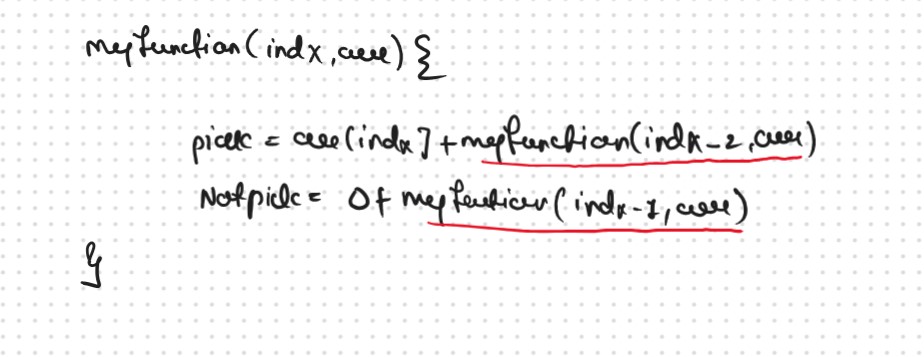 myfunction(indx,arr){
pick = arr[indx]+myfunction(indx-2,arr)
Notpick = 0+ myfunction(indx-1,arr)
}